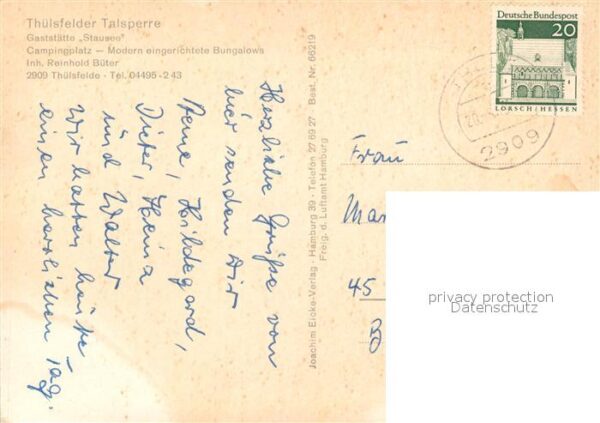 Thülsfelder Talsperre
Gaststätte „Stausee"
Campingplatz — Modern eingerichtete Bungalows
Inh. Reinhold Büter
2909 Thülsfelde · Tel. 04495-243
Herzliche Grüße von
hier senden Dir
Rene, Hildegard,
Dieter, Heinz
und Walter
Wir hatten heute
einen herrlichen Tag.
Joachim Eicke-Verlag · Hamburg 39 · Telefon 27 69 27 Best. Nr. 66219
Freig. d. Luftamt Hamburg
Deutsche Bundespost
20
LORSCH/HESSEN
2909
Frau
Mar
45
privacy protection
Datenschutz